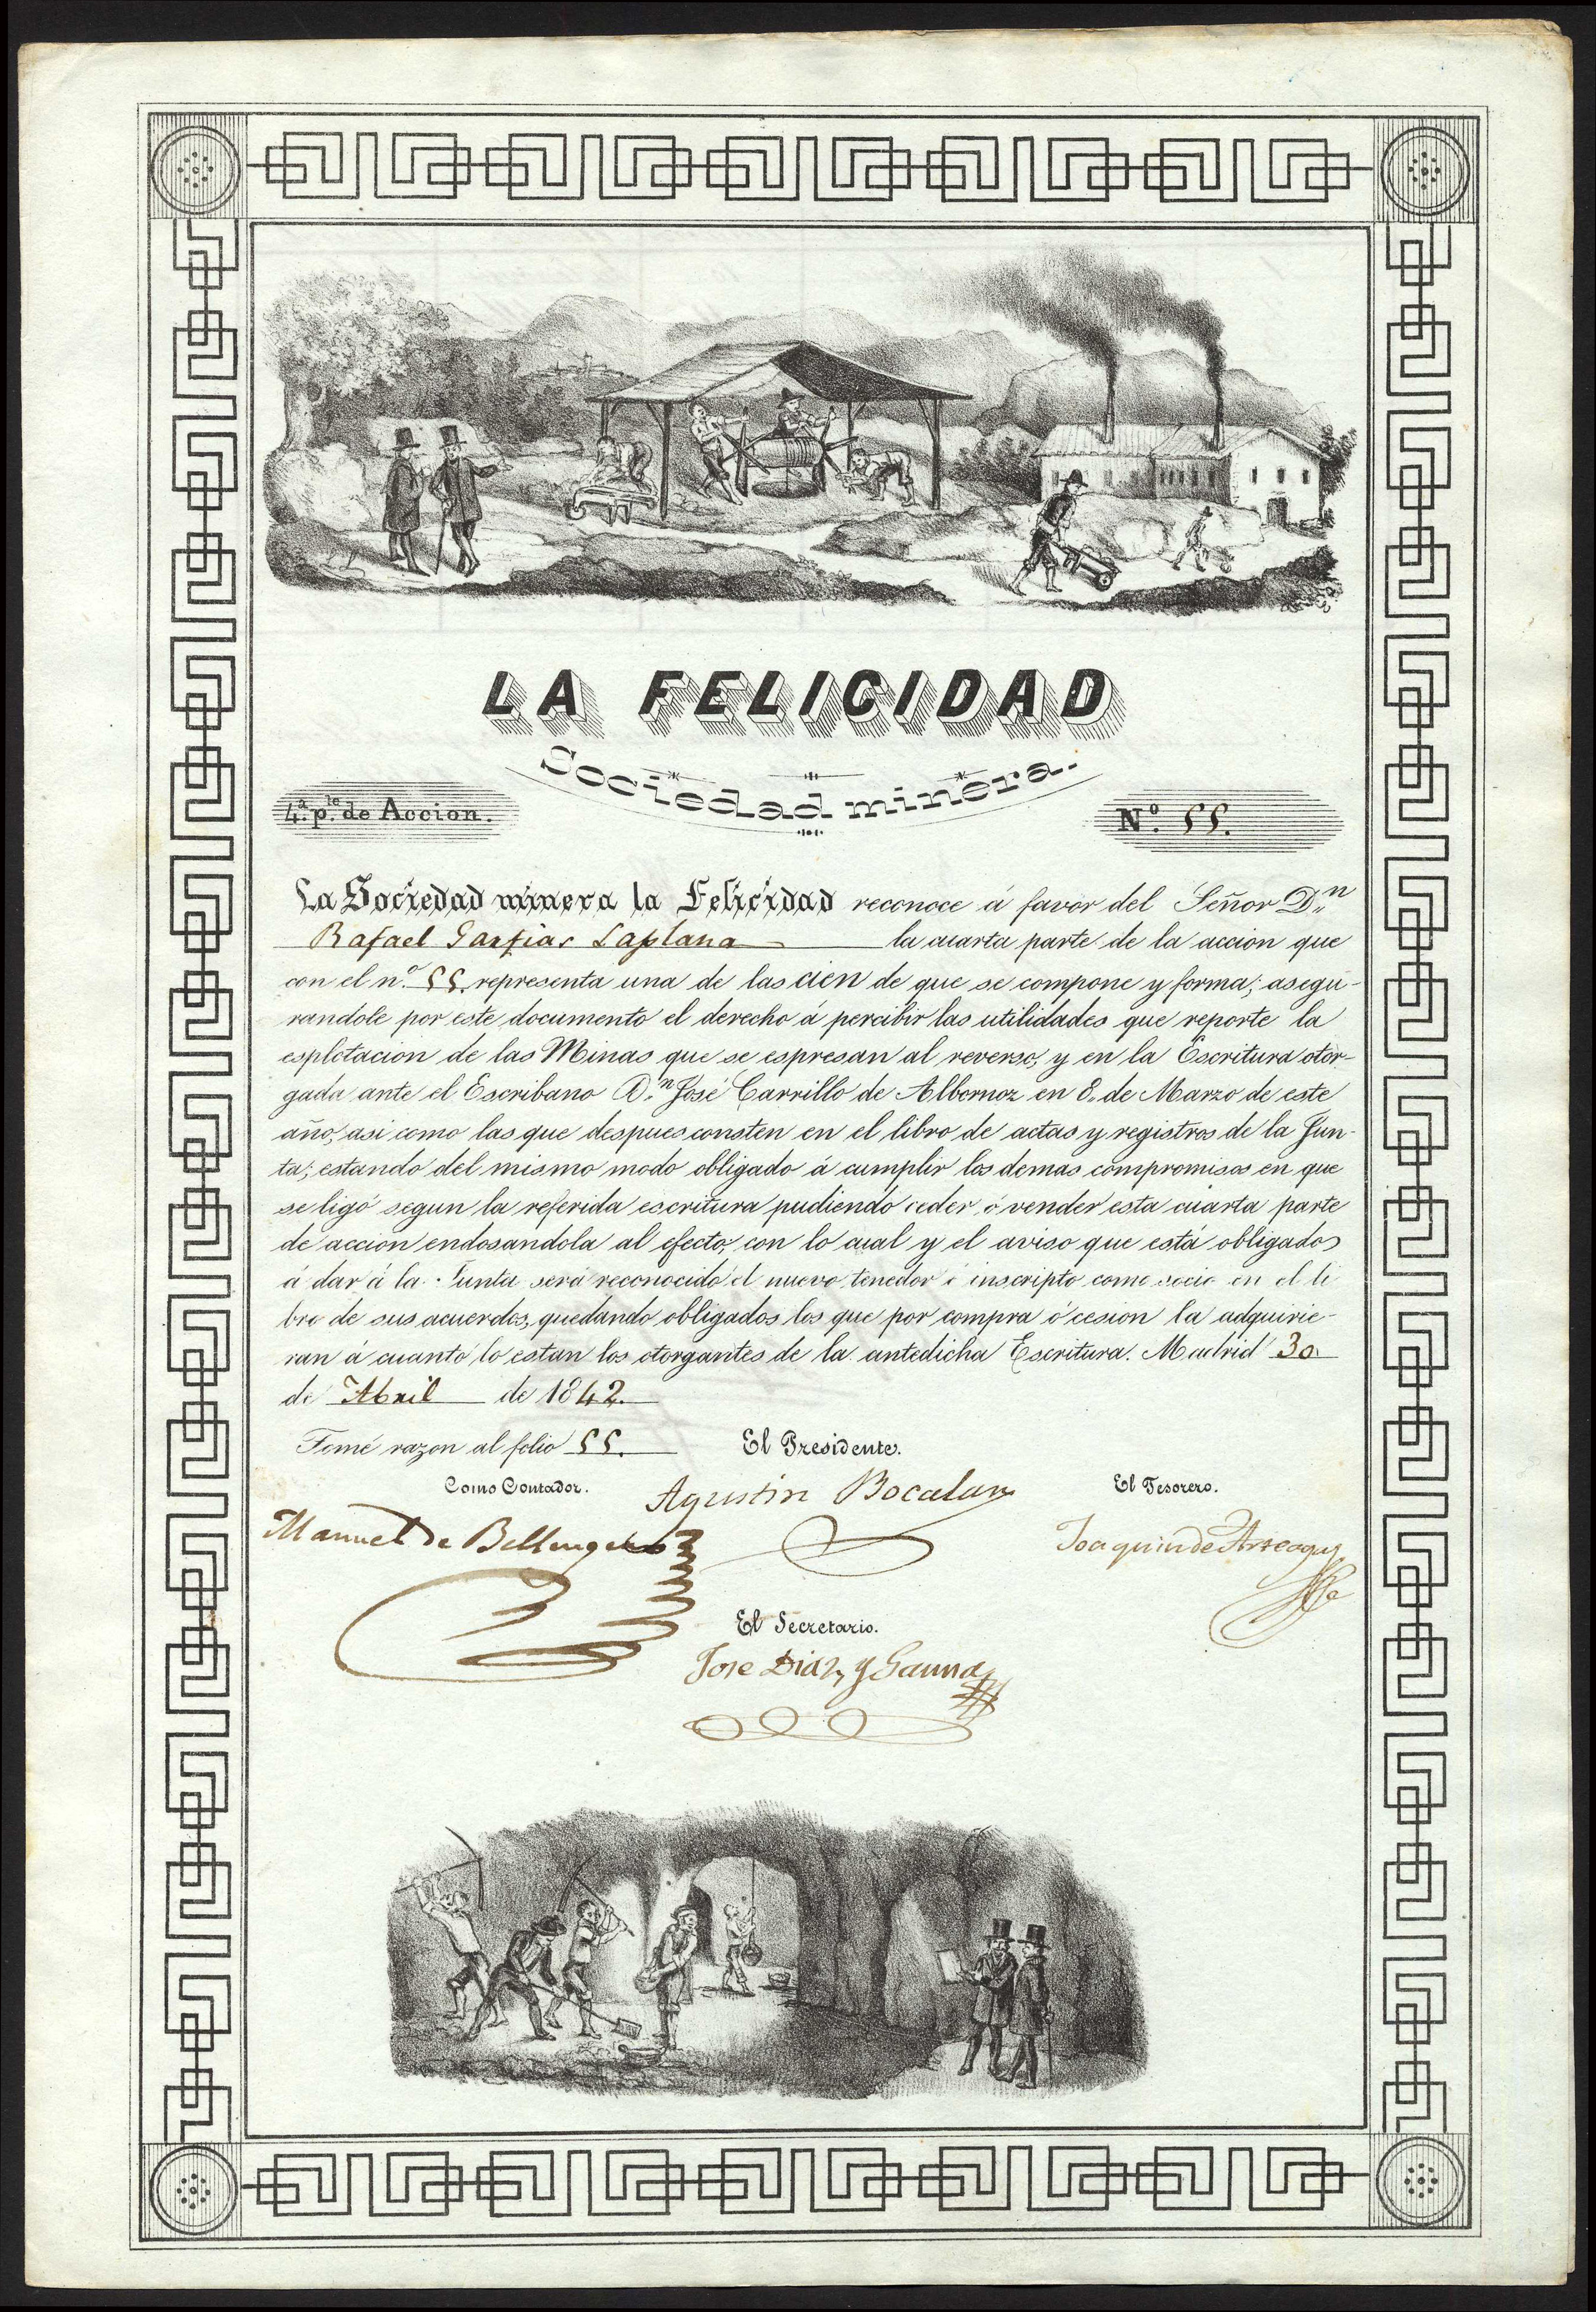 LA FELICIDAD
Sociedad minera.
4ª pte de Accion.
Nº 55.
La Sociedad minera la Felicidad reconoce á favor del Señor Dn
Rafael Garfias Laplana la cuarta parte de la accion que
con el nº 55. representa una de las cien de que se compone y forma; asegu-
randole por este documento el derecho á percibir las utilidades que reporte la
esplotacion de las Minas que se espresan al reverso, y en la Escritura otor-
gada ante el Escribano Dn José Carrillo de Albornoz en 8. de Marzo de este
año, asi como las que despues consten en el libro de actas y registros de la Jun-
ta; estando del mismo modo obligado á cumplir los demas compromisos en que
se ligó segun la referida escritura pudiendo ceder ó vender esta cuarta parte
de accion endosandola al efecto, con lo cual y el aviso que está obligado
á dar á la Junta será reconocido el nuevo tenedor é inscripto como socio en el li
bro de sus acuerdos, quedando obligados los que por compra ó cesion la adquirie-
ran á cuanto lo estan los otorgantes de la antedicha Escritura. Madrid 30.
de Abril de 1842.
Tomé razon al folio 55.
El Presidente.
Como Contador.
Agustin Bocalan
El Tesorero.
Manuel de
Joaquin de Arteaga
El Secretario.
Jose Diaz y